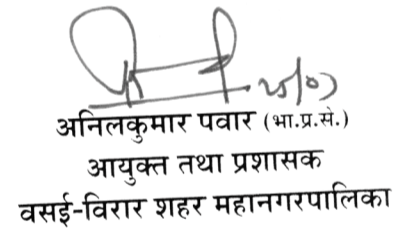 अनिलकुमार पवार (भा.प्र.से.)
आयुक्त तथा प्रशासक
वसई-विरार शहर महानगरपालिका